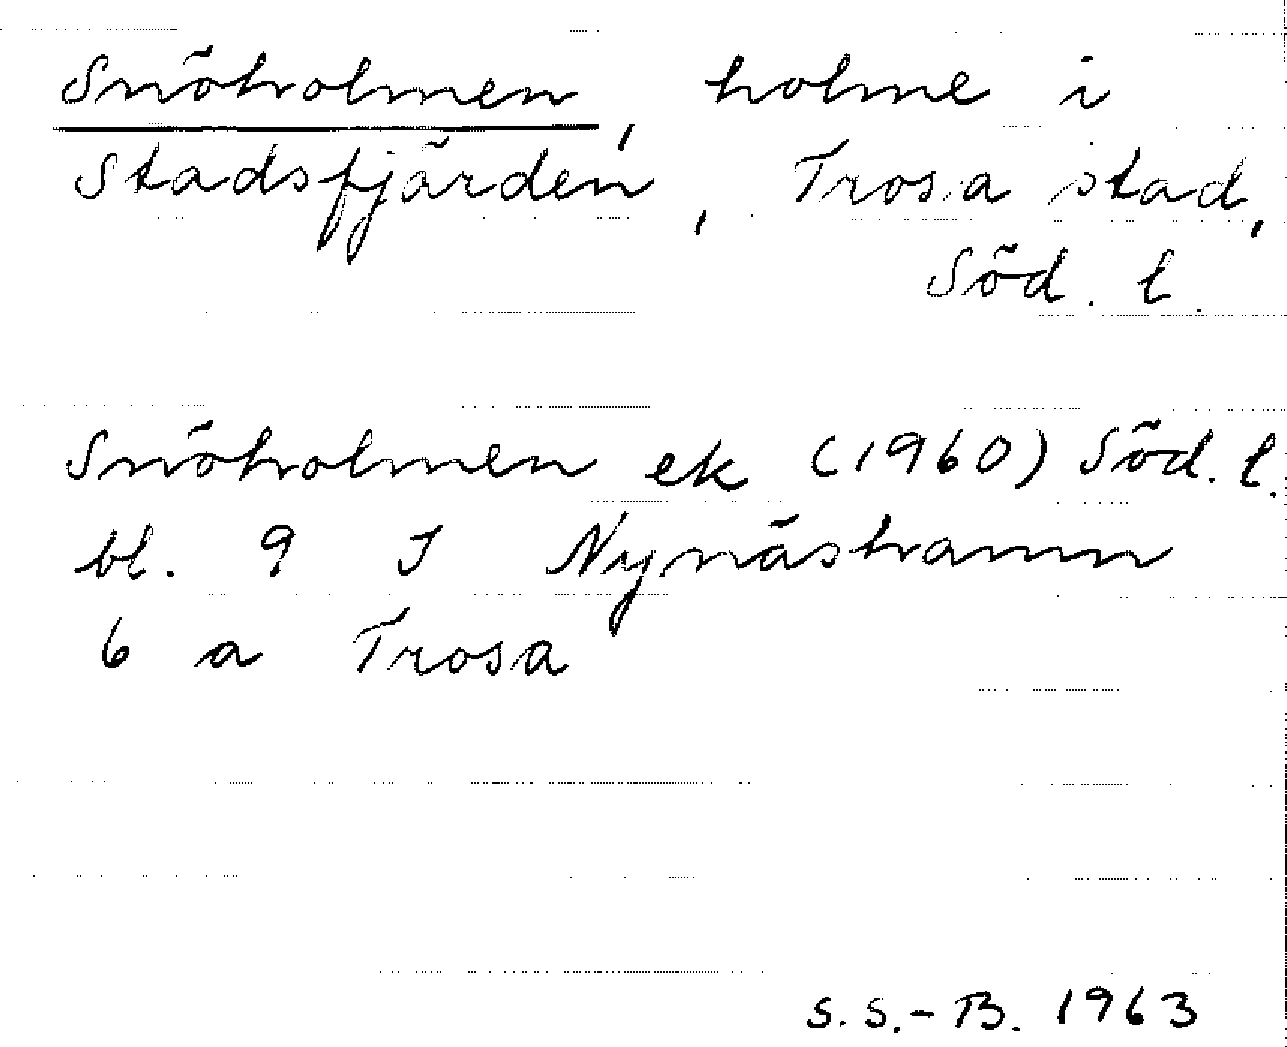 Snöholmen, holme i
Stadsfjärden, Trosa stad,
Söd. l.
Snöholmen ek (1960) Söd. l.
bl. 9 J Nynäshamn
6 a Trosa
S.S.-B. 1963